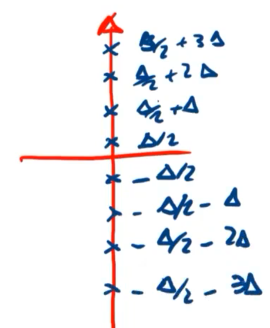 Δ/2 + 3Δ
Δ/2 + 2Δ
Δ/2 + Δ
Δ/2
- Δ/2
- Δ/2 - Δ
- Δ/2 - 2Δ
- Δ/2 - 3Δ